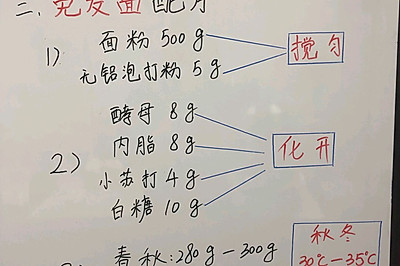 二、免发面配方
1)
面粉 500g
无铝泡打粉 5g
搅匀
2)
酵母 8g
内脂 8g
小苏打 4g
白糖 10g
化开
春秋:280g—300g
秋冬
30℃—35℃